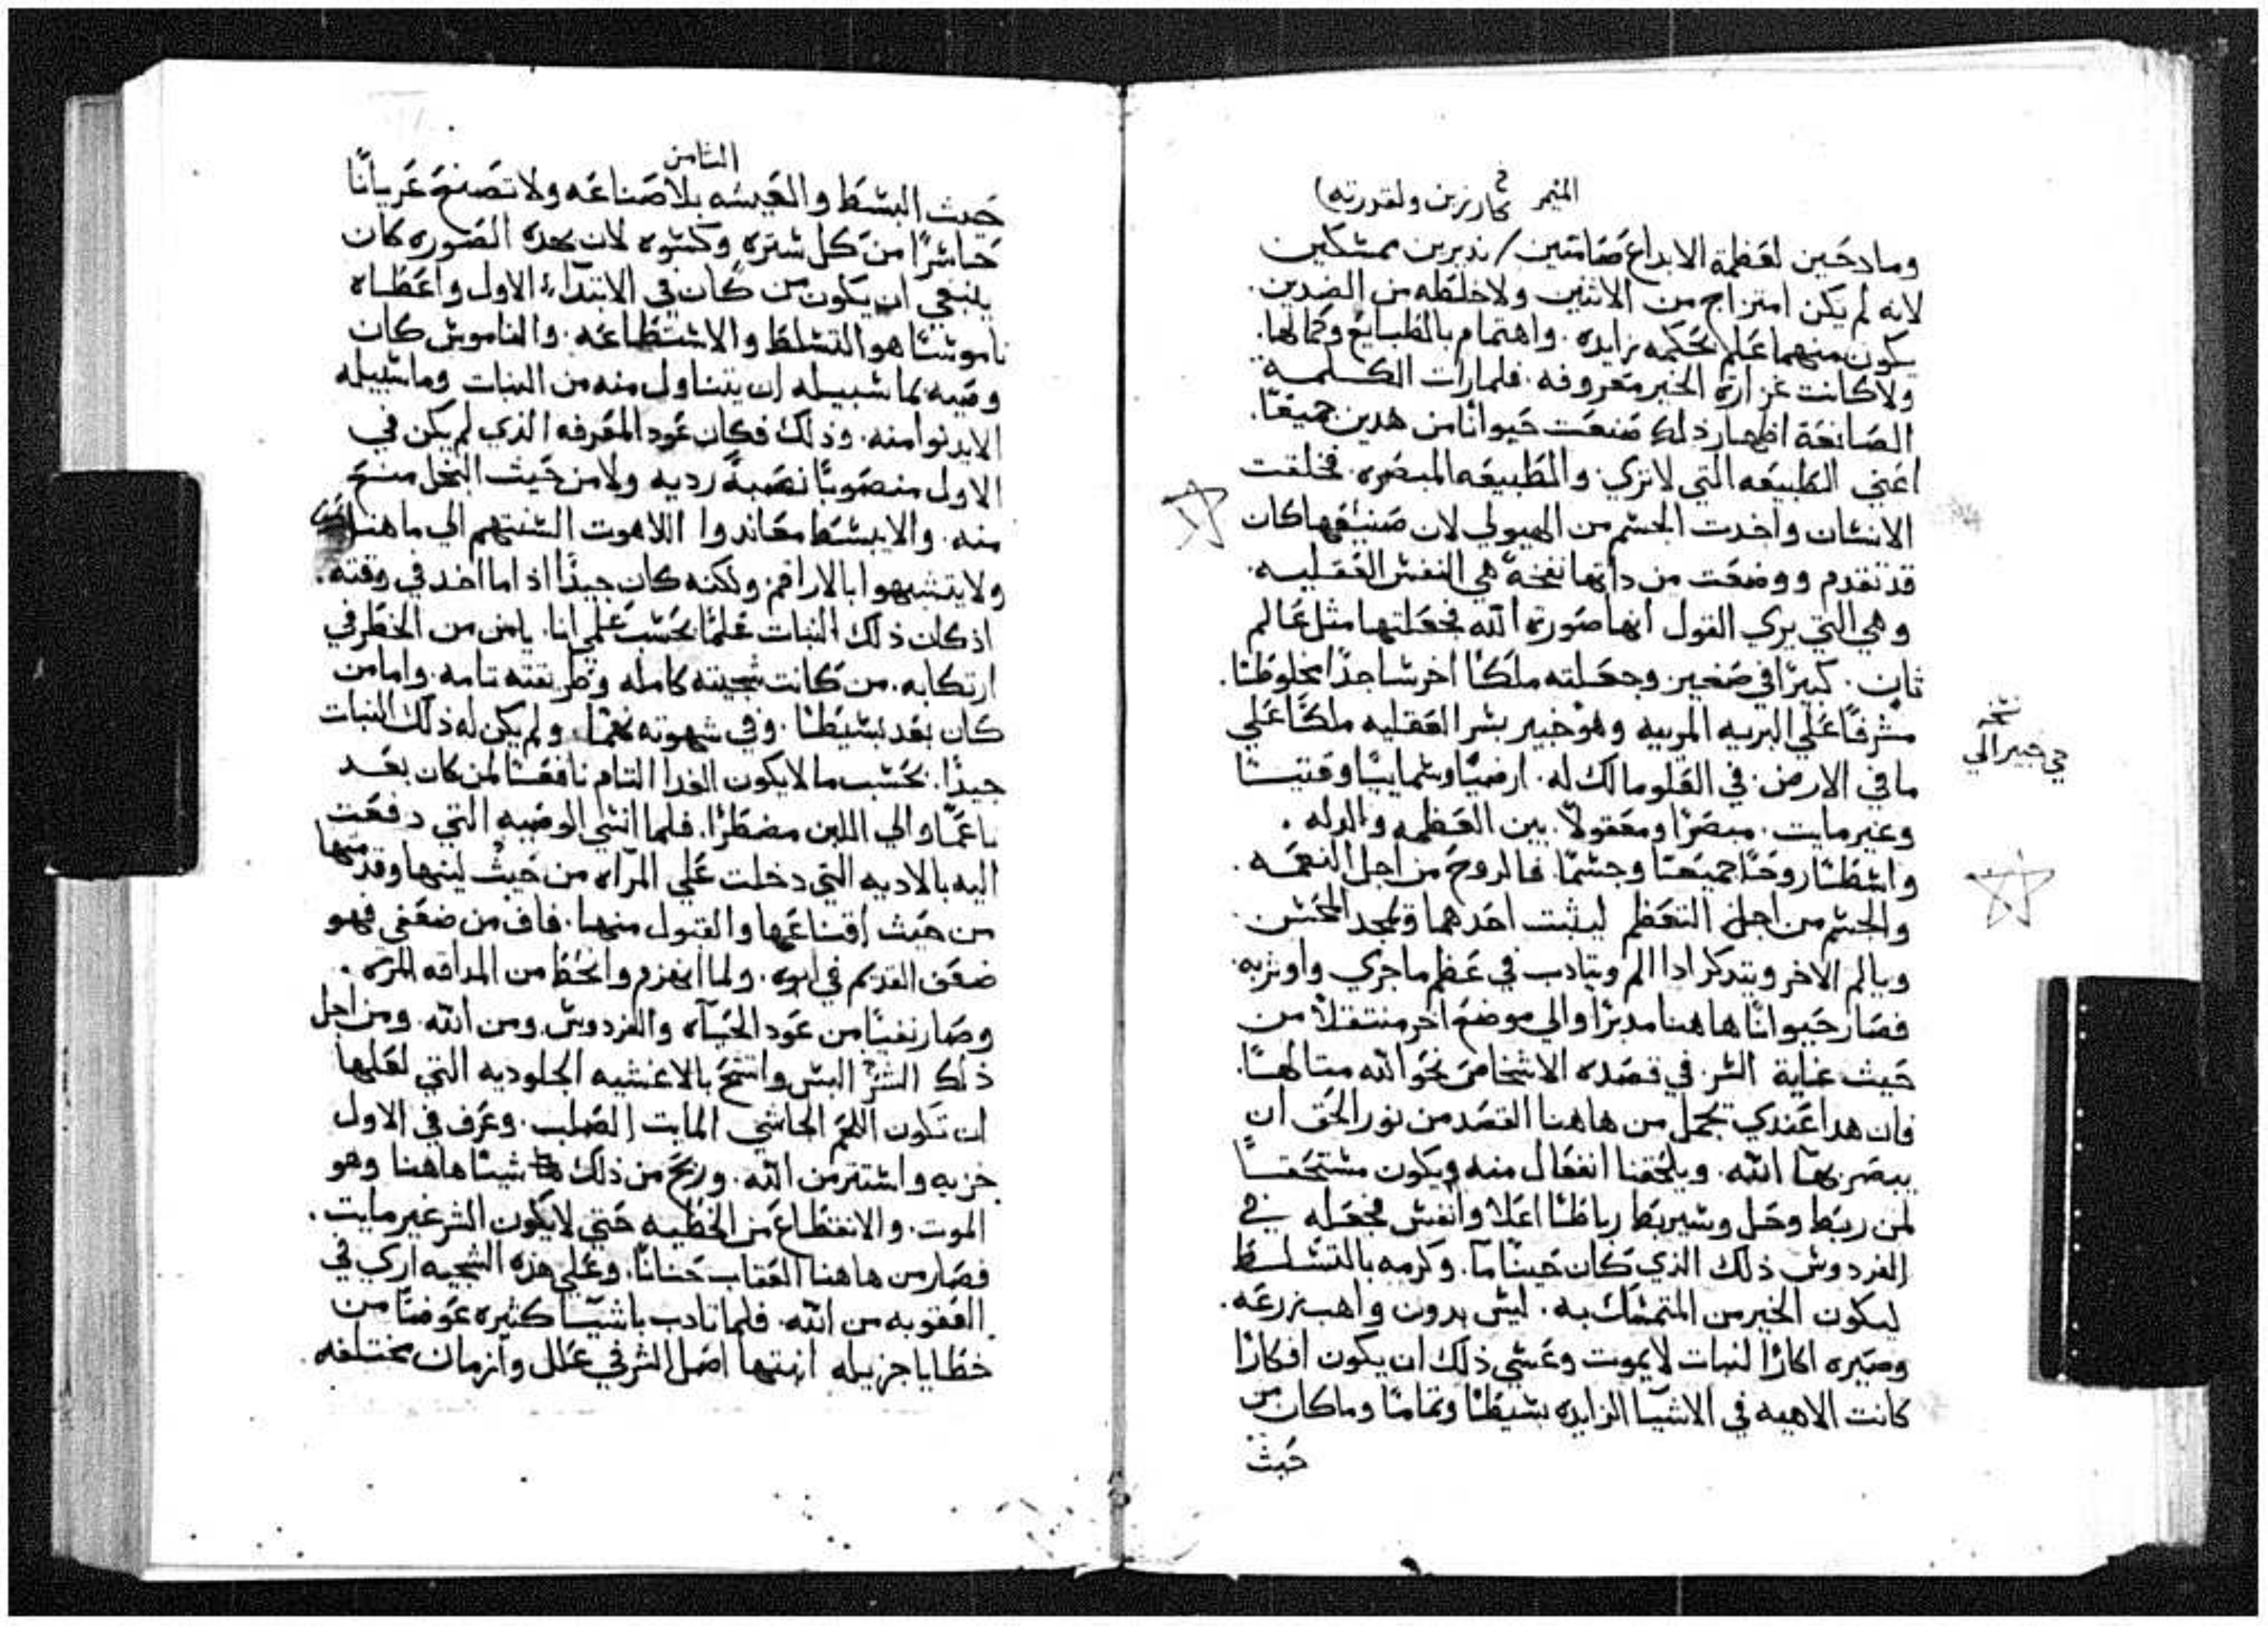 الميمر
كارزين ولقدرته)
ومادحين لعظمة الابداع صامتين / نديرين ممسكين
لانه لم يكن امتزاج من الاثنين ولا خلطه من الضدين.
يكون منهما علم بحكمه زايده. واهتمام بالطبايع وكمالها.
ولا كانت غزارة الخير معروفه. فلما رات الكلمة
الصانعة اظهار ذلك صنعت حيوانًا من هدين جميعًا.
اعني الطبيعه التي لا تري. والطبيعه المبصره. فخلقت
الانسان واخدت الجسم من الهيولي لان صنيعها كان
قد تقدم ووضعت من داتها نفخة هي النفس العقليه.
وهي التي يري القول انها صورة الله فجعلتها مثل عالم
ثان. كبيرًا في صغير وجعلته ملكًا اخر ساجدًا مخلوطًا.
مشرفًا علي البريه المربيه وهو خبير بسر العقليه ملكًا علي
ما في الارض. في العلو مالك له. ارضيًا وسماييًا وقتيًا
وغير مايت. مبصرًا ومعقولًا. بين العظمه والدله.
واسطًا روحًا جميعًا وجسمًا. فالروح من اجل النعمه.
والجسم من اجل التعظم ليثبت احدهما ويمجد المحسن
ويالم الاخر ويتدكر ادا الم ويتادب في عظم ما جري واوثر به.
فصار حيوانًا هاهنا مدبرًا والي موضع اخر منتقلًا من
حيث غاية السر. في قصده الاشخاص نحو الله متالهًا.
فان هدا عندي يحمل من هاهنا القصد من نور الحق ان
يبصر بها الله. ويلحقنا انفعال منه ويكون مستحقًا
لمن ربط وحل وسيربط رباطًا اعلا وانفس فجعله في
الفردوس ذلك الذي كان حينًا ما. وكرمه بالتسلط
ليكون الخير من المتمسك به. ليس بدون واهب زرعه.
وصيره اكارًا لنبات لا يموت وعسي ذلك ان يكون افكارًا
كانت الاهيه في الاشيا الزايده بسيطًا وتمامًا وما كان من
حيث
نسخه
حي خبير الي
الثامن
حيث البسط والعيشه بلا صناعه ولا تصنع عريانًا
حاسرًا من كل ستره وكسوه لان بهده الصوره كان
ينبغي ان يكون من كان في الابتداء الاول واعطاه
ناموسًا هو التسلط والاستطاعه. والناموس كان
وصيه بما سبيله ان يتناول منه من النبات وما سبيله
الا يدنوا منه. وذلك فكان عود المعرفه الذي لم يكن في
الاول منصوبًا نصبةً رديه ولا من حيث البخل منع
منه. والا يبسط معاندوا اللاهوت السنتهم الي ما هنالك
ولا يتشبهوا بالاراقم ولكنه كان جيدًا اذا ما اخد في وقته.
اذ كان ذلك النبات علمًا بحسب علمي انا. يامن من الخطر في
ارتكابه. من كانت سجيته كامله وطريقته تامه. واما من
كان بعد بسيطًا. وفي شهوته نهمًا. ولم يكن له ذلك النبات
جيدًا. بحسب ما لا يكون الغدا التام نافعًا لمن كان بعد
ناعمًا والي اللبن مضطرًا. فلما انسي الوصيه التي دفعت
اليه بالاديه التي دخلت علي المراه من حيث لينها وقدمتها
من حيث اقناعها والقبول منها. فاف من ضعفي فهو
ضعف القديم في ابوه. ولما انهزم وانحط من المداقه المره.
وصار نفيًا من عود الحياه والفردوس ومن الله. ومن اجل
ذلك الشر البس واتشح بالاغشيه الجلوديه التي لعلها
ان تكون اللحم الحاسي المايت الصلب. وعرف في الاول
خزيه واستتر من الله. وربح من ذلك شيئًا هاهنا وهو
الموت. والانقطاع من الخطيه حتي لا يكون الشر غير مايت.
فصار من هاهنا العقاب حنانًا. وعلي هذه السجيه اري في
العقوبه من الله. فلما تادب باشيا كثيره عوضًا من
خطايا جزيله انبتها اصل الشر في علل وازمان مختلفه.